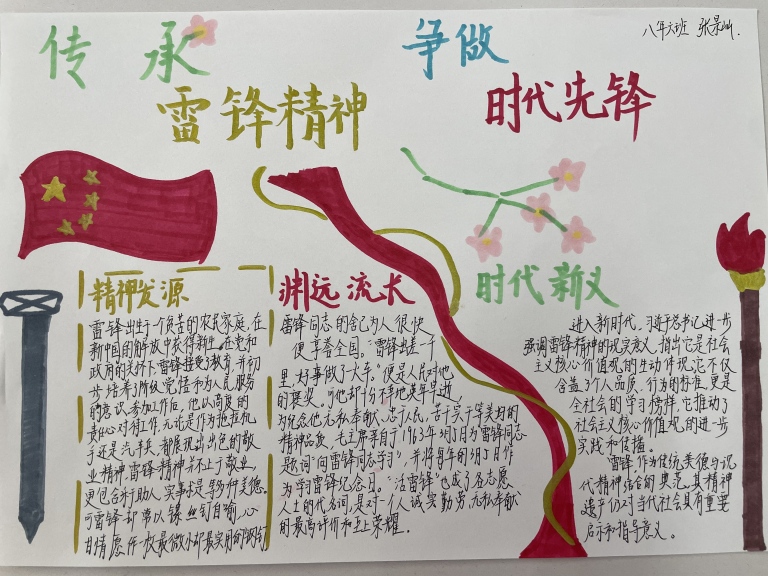 八年六班 张景
传承
雷锋精神
争做
时代先锋
精神发源
雷锋出生于一个贫苦的农民家庭,在
新中国的解放中获得新生.在党和
政府的关怀下,雷锋接受了教育,并初
步培养了阶级觉悟和为人民服务
的意识.参加工作后,他以高度的
责任心对待工作,无论是作为拖拉机
手还是汽车兵,都展现出出色的敬
业精神.雷锋精神不止于敬业,
更包含于助人、实事求是等多种美德.
雷锋却常以镙丝钉自喻,心
甘情愿作一枚最微小却最实用的“钢钉
渊远流长
雷锋同志的舍己为人很快
便享誉全国.“雷锋出差一千
里,好事做了火车.”便是人民对他
的褒奖.可他却十分不幸地英年早逝.
为纪念他无私奉献、忠于人民、苦干实干等美好的
精神品质,毛主席亲自于1963年3月5日为雷锋同志
题词“向雷锋同志学习”,并将每年的3月5日作
为学习雷锋纪念日.“活雷锋”也成了各志愿
人士的代名词,是对一个人诚实勤劳、无私奉献
的最高评价和至上荣耀.
时代新义
进入新时代,习近平总书记进一步
强调雷锋精神的现实意义,指出它是社会
主义核心价值观的生动体现.它不仅
含盖了个人品质、行为的标准,更是
全社会的学习榜样,它推动了
社会主义核心价值观的进一步
实践和传播.
雷锋作为传统美德与现
代精神结合的典范,其精神
遗产仍对当代社会具有重要
启示和指导意义.